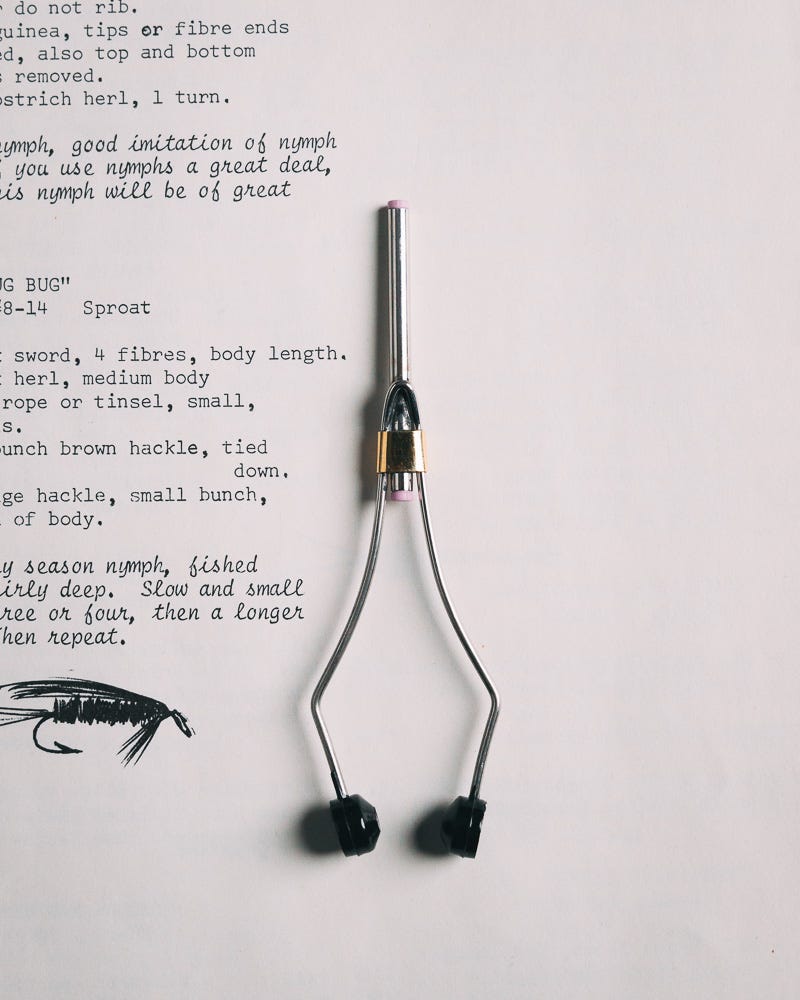 do not rib.
guinea, tips or fibre ends
ed, also top and bottom
s removed.
ostrich herl, 1 turn.
nymph, good imitation of nymph
you use nymphs a great deal,
is nymph will be of great
UG BUG"
#8-14 Sproat
t sword, 4 fibres, body length.
t herl, medium body
rope or tinsel, small,
s.
bunch brown hackle, tied
down.
ge hackle, small bunch,
of body.
y season nymph, fished
irly deep. Slow and small
ree or four, then a longer
hen repeat.